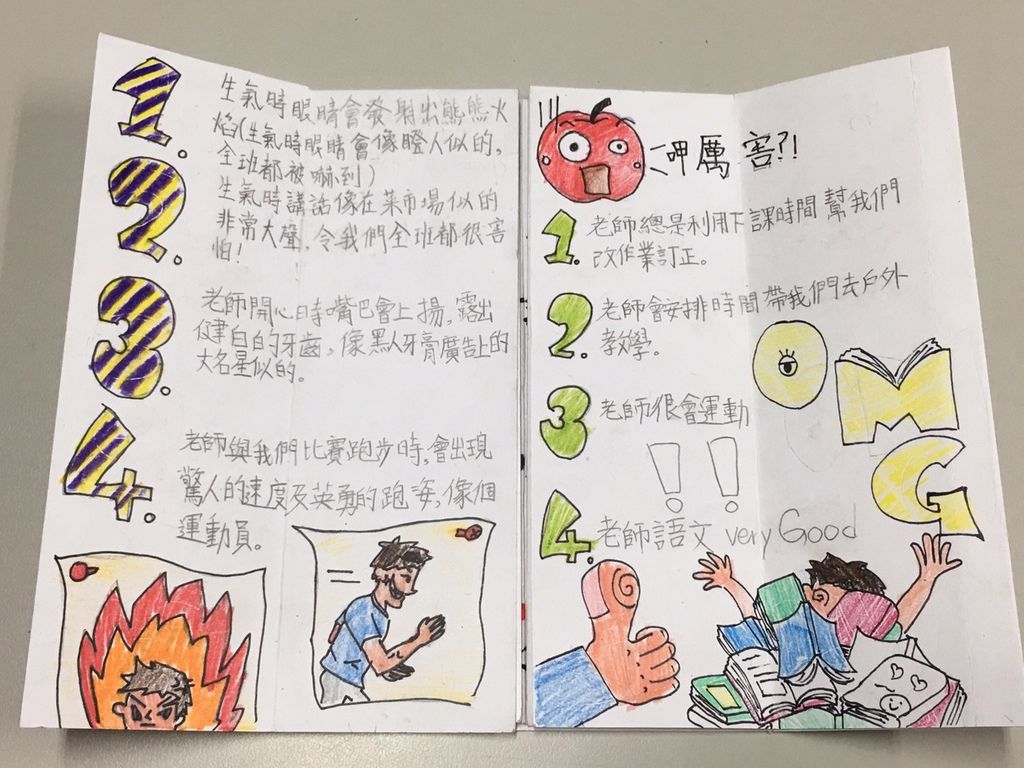 1.
生氣時眼睛會發射出熊熊火
焰(生氣時眼睛會像瞪人似的,
全班都被嚇到)
2.
生氣時講話像在菜市場似的
非常大聲,令我們全班都很害
怕!
3.
老師開心時嘴巴會上揚,露出
潔白的牙齒,像黑人牙膏廣告上的
大名星似的。
4.
老師與我們比賽跑步時,會出現
驚人的速度及英勇的跑姿,像個
運動員。
呷厲害?!
1.
老師總是利用下課時間幫我們
改作業訂正。
2.
老師會安排時間帶我們去戶外
教學。
3.
老師很會運動
!!
OMG
4.
老師語文 very Good